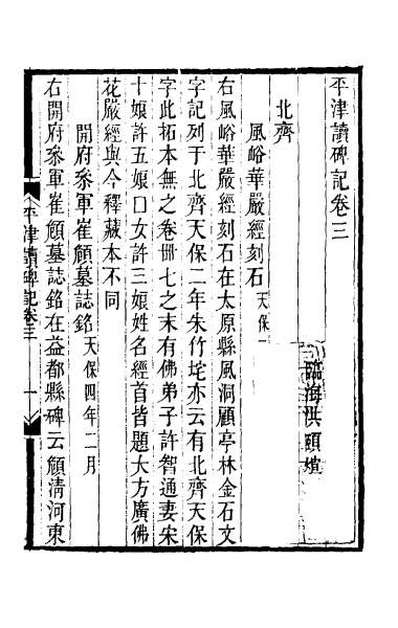 平津讀碑記卷三
臨海洪頤煊
北齊
風峪華嚴經刻石天保
右風峪華嚴經刻石在太原縣風洞顧亭林金石文
字記列于北齊天保二年朱竹垞亦云有北齊天保
字此拓本無之卷卌七之末有佛弟子許智通妻宋
十娘許五娘口女許三娘姓名經首皆題大方廣佛
花嚴經與今釋藏本不同
開府叅軍崔頠墓誌銘天保四年二月
右開府叅軍崔頠墓誌銘在益都縣碑云頠淸河東
平津讀碑記卷三
一